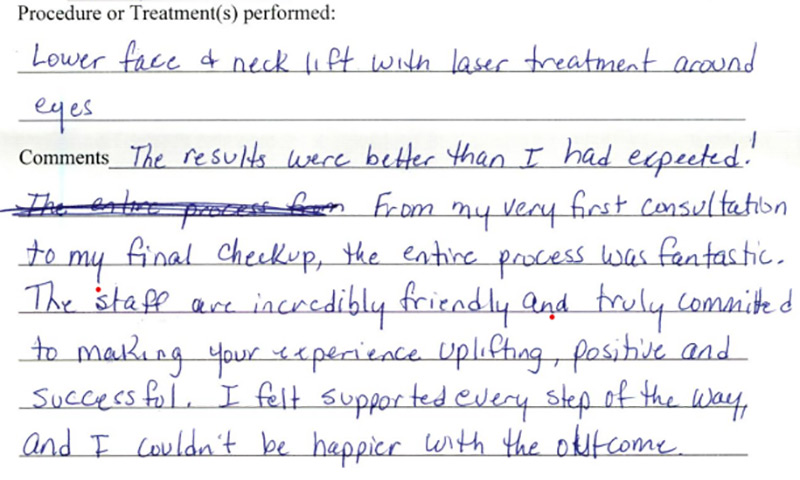 Procedure or Treatment(s) performed:
Lower face & neck lift with laser treatment around
eyes
Comments The results were better than I had expected!
The entire process from From my very first consultation
to my final checkup, the entire process was fantastic.
The staff are incredibly friendly and truly committed
to making your experience uplifting, positive and
successful. I felt supported every step of the way,
and I couldn't be happier with the outcome.